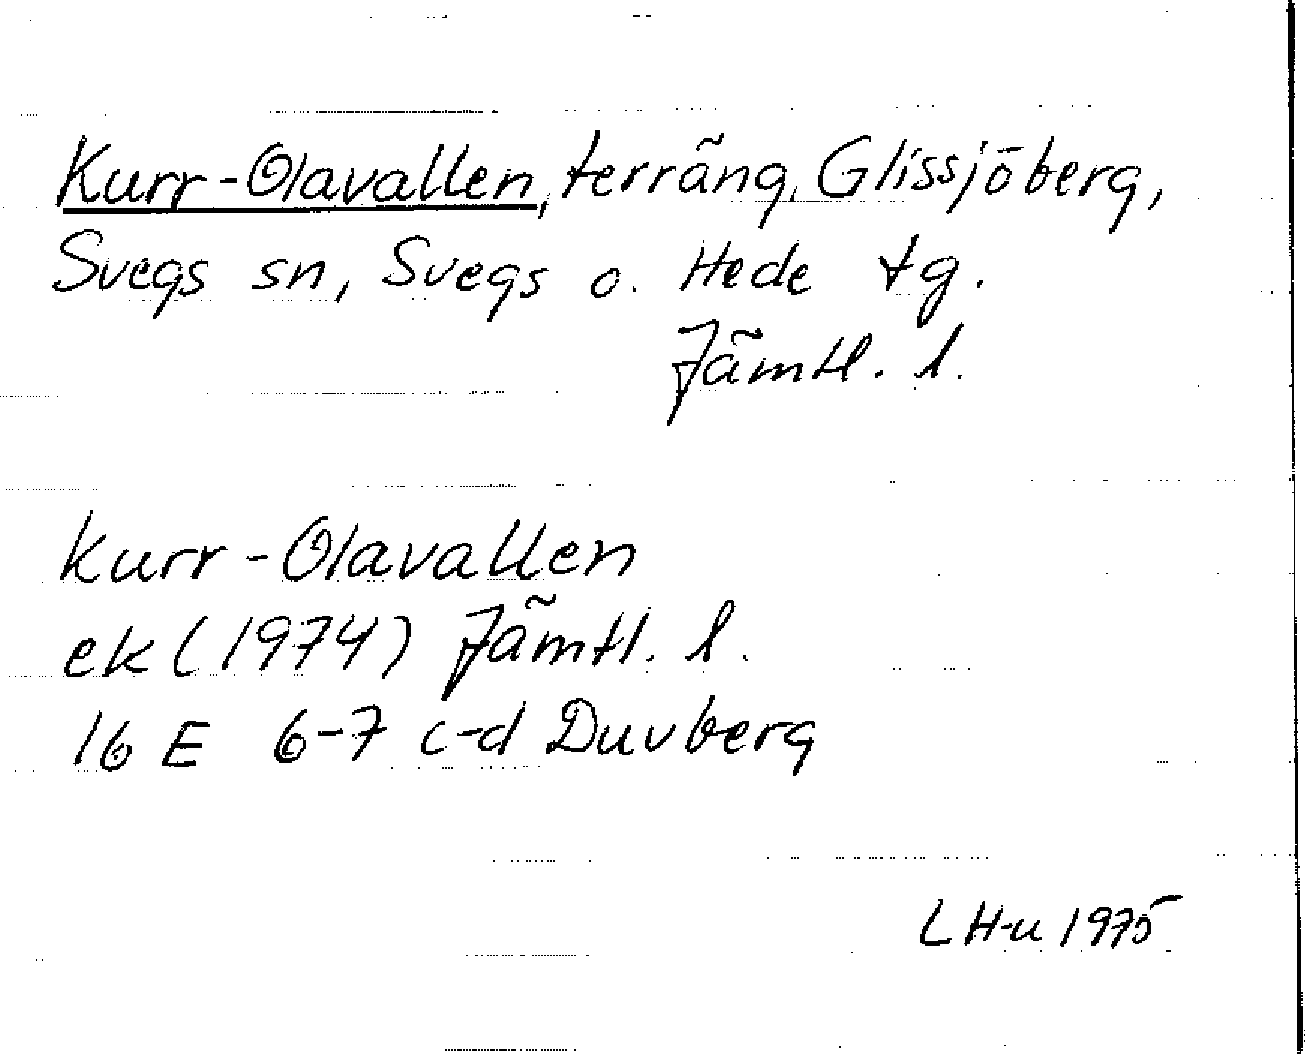 Kurr-Olavallen, terräng, Glissjöberg,
Svegs sn, Svegs o. Hede tg.
Jämtl. l.
Kurr-Olavallen
ek (1974) Jämtl. l.
16 E 6-7 c-d Duvberg
LH-u 1975